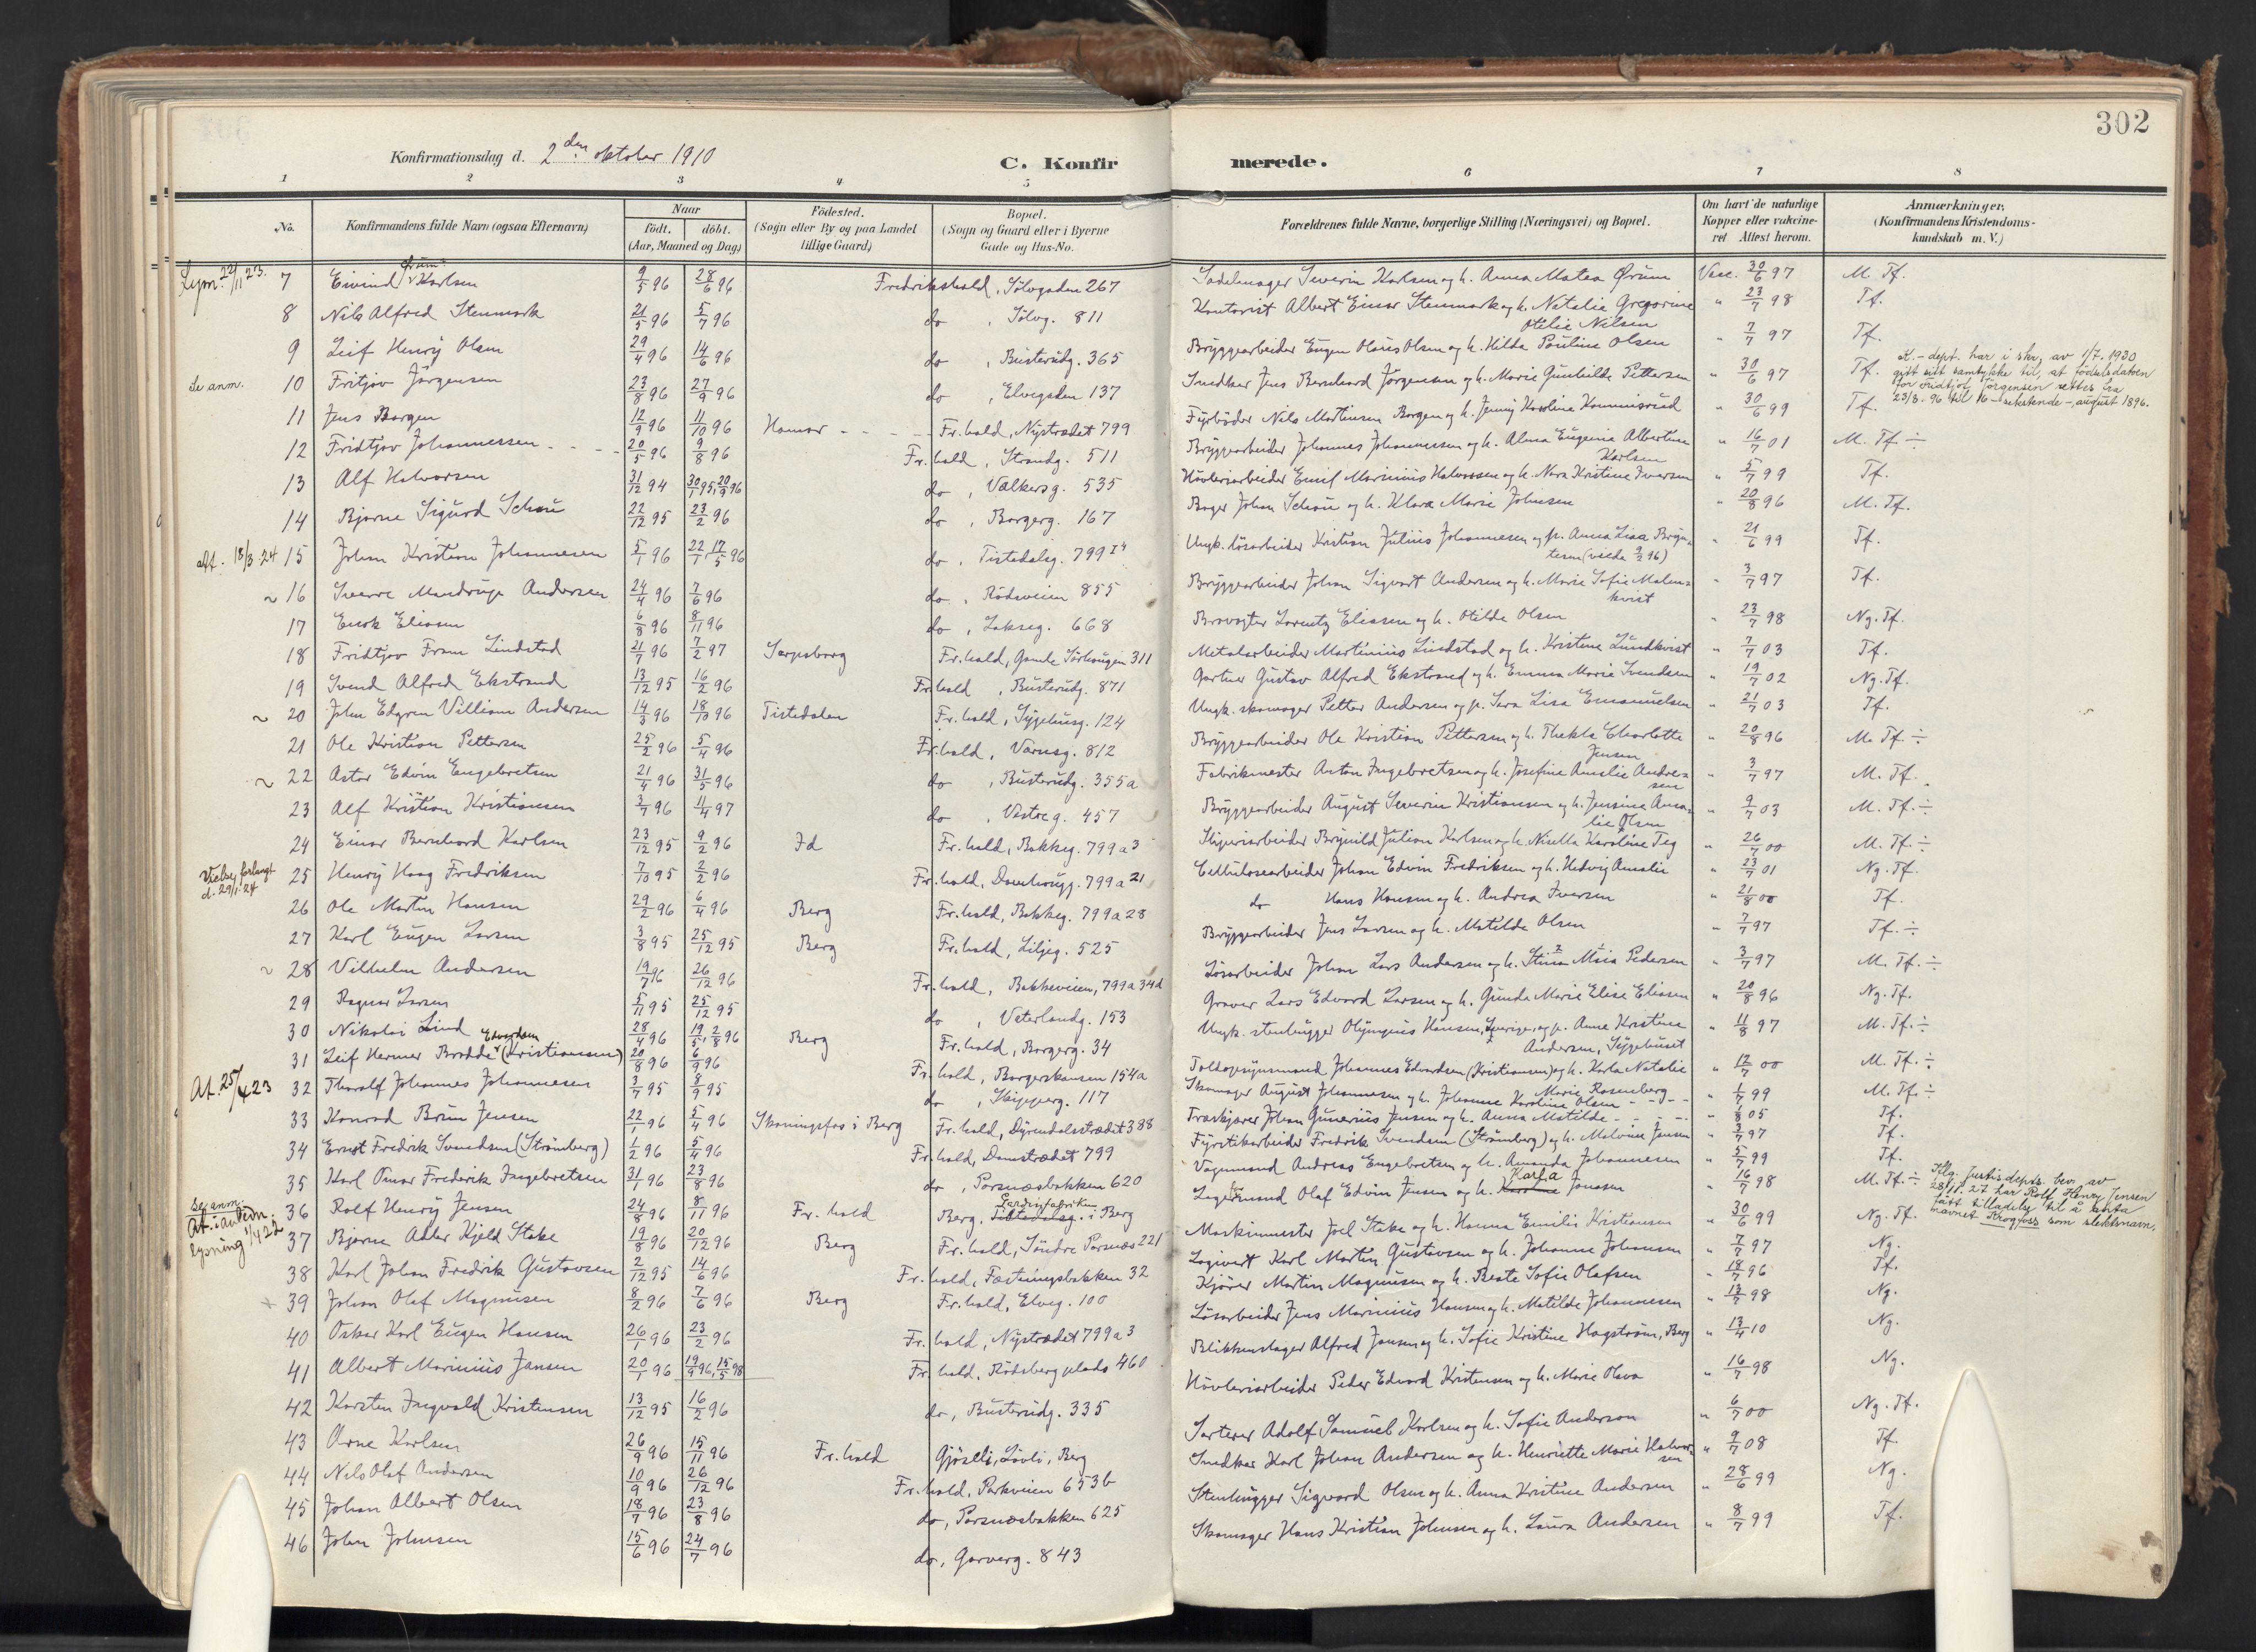 302
Konfirmationsdag d. 2den oktober 1910
C. Konfirmerede.
1 2 3 4 5 6 7 8
No. Konfirmandens fulde Navn (ogsaa Efternavn) Naar Födested. Bopæl. Forældrenes fulde Navne, borgerlige Stilling (Næringsvei) og Bopæl. Om havt de naturlige Anmærkninger.
födt. döbt. (Sogn eller By og paa Landet (Sogn og Gaard eller i Byerne Kopper eller vakcine- (Konfirmandens Kristendoms-
(Aar, Maaned og Dag) tillige Gaard) Gade og Hus-No. ret Attest herom. kundskab m. V.)
22/11 23. 7 Eivind Ørum Karlsen 9/5 96 28/6 96 Fredrikshald, Sölvgaden 267 Sadelmager Severin Karlsen og h. Anna Matea Ørum Vacc. 30/6 97 M. Tf.
8 Nils Alfred Stenmark 21/5 96 5/7 96 do, Sölvg. 811 Kontorist Albert Einar Stenmark og h. Natalie Gregorine Otilie Nilsen " 23/7 98 Tf.
9 Leif Henry Olsen 29/4 96 14/6 96 do, Busterudg. 365 Bryggearbeider Eugen Olaus Olsen og h. Hilda Pauline Olsen " 7/7 97 Tf.
se anm. 10 Fritjov Jörgensen 23/8 96 27/9 96 do, Elvegaden 137 Snedker Jens Bernhard Jörgensen og h. Marie Gunhilde Pettersen " 30/6 97 Tf.
K.-dept. har i skr. av 1/7. 1930
gitt sitt samtykke til, at födselsdatoen
for Fridtjof Jörgensen rettes fra
23/8. 96 til 16 - sekstende - august 1896.
11 Jens Borgen 12/9 96 11/10 96 Hamar Fr.hald, Nystrædet 799 Fyrböder Nils Martinsen Borgen og h. Jenny Karoline Kommisrud " 30/6 99 Tf.
12 Fridtjov Johannessen 20/5 96 9/8 96 Fr.hald, Strandg. 511 Bryggearbeider Johannes Johannessen og h. Alma Eugenia Albertine Karlsen " 16/7 01 M. Tf ÷
13 Alf Halvorsen 31/12 94 30/1 95, 20/9 96 do, Valkersg. 535 Hövleriarbeider Emil Marinius Halvorsen og h. Nora Kristine Iversen " 5/7 99 Tf.
14 Bjarne Sigurd Schou 22/12 95 23/2 96 do, Borgerg. 167 Bager Johan Schou og h. Klara Marie Johnsen " 20/8 96 M. Tf.
att. 18/3 24 15 Johan Kristian Johannesen 5/1 96 22/1, 17/5 96 do, Tistedalsg. 799 Ungk. lösarbeider Kristian Julius Johannesen og p. Anna Lisa Bryn- " 21/6 99 Tf.
~ 16 Sverre Mandrup Andersen 24/4 96 7/6 96 do, Rödsveien 855 Bryggearbeider Johan Sigvart Andersen og h. Marie Sofie Malmkvist " 3/7 97 Tf.
17 Enok Eliasen 6/8 96 8/11 96 do, Lakseg. 668 Brovogter Lorentz Eliasen og h. Otilde Olsen " 23/7 98 Ng. Tf.
18 Fridtjov Fram Lindstad 21/7 96 7/2 97 Sarpsborg Fr.hald, Gamle Sörhaugen 311 Metalarbeider Martinius Lindstad og h. Kristine Lundkvist " 7/7 03 Tf.
19 Svend Alfred Ekstrand 13/12 95 16/2 96 Fr.hald, Busterudg. 871 Gartner Gustav Alfred Ekstrand og h. Emma Marie Svendsen " 19/7 02 Ng. Tf.
~ 20 John Edgren Villiam Andersen 14/3 96 18/10 96 Tistedalen Fr.hald, Sygehusg. 124 Ungk. skomager Petter Andersen og p. Sara Lisa Emanuelsen " 21/7 03 Tf.
21 Ole Kristian Pettersen 25/2 96 5/4 96 Fr.hald, Værnesg. 812 Bryggearbeider Ole Kristian Pettersen og h. Thekla Charlotte Jensen " 20/8 96 M. Tf ÷
~ 22 Astor Edvin Engebretsen 21/4 96 31/5 96 do, Busterudg. 355a Fabrikmester Anton Ingebretsen og h. Josefine Amalie Andresen " 3/7 97 M. Tf.
23 Alf Kristian Kristiansen 3/7 96 11/4 97 do, Vestreg. 457 Bryggearbeider August Severin Kristiansen og h. Jensine Amalie Olsen " 9/7 03 M. Tf. ÷
24 Einar Bernhard Karlsen 23/12 95 9/2 96 Id Fr.hald, Bakkeg. 799a3 Skyveriarbeider Brynild Julian Karlsen og h. Nisella Karoline Teg " 26/7 00 M. Tf. ÷
Vielse forlangt d. 29/1 24 25 Henry Haag Fredriksen 7/10 95 2/2 96 Fr.hald, Damhaugg. 799a21 Cellulosearbeider Johan Edvin Fredriksen og h. Hedvig Amalie " 23/7 01 Ng. Tf.
26 Ole Martin Hansen 29/2 96 6/4 96 Berg Fr.hald, Bakkeg. 799a28 do Hans Hansen og h. Andrea Iversen " 21/8 00 Tf.
27 Karl Eugen Larsen 3/8 95 25/12 95 Berg Fr.hald, Liljeg. 525 Bryggearbeider Jens Larsen og h. Matilde Olsen " 7/7 97 Tf. ÷
~ 28 Vilhelm Andersen 19/7 96 26/12 96 Fr.hald, Bakkeveien, 799a34d Lösarbeider Johan Lars Andersen og h. Stina Maia Pedersen " 3/7 97 M. Tf. ÷
29 Ragnar Larsen 5/11 95 25/12 95 do, Veterlandg. 153 Graver Lars Edvard Larsen og h. Gunda Marie Elise Eliasen " 20/8 96 Ng. Tf.
30 Nikolai Lind 28/4 96 19/5, 2/8 96 Berg Fr.hald, Borgerg. 34 Ungk. stenhugger Olympius Hansen, Sverige, og p. Anne Kristine Andersen, Sygehuset " 11/8 97 M. Tf. ÷
31 Leif Hermer Brodde Edvardsen (Kristiansen) 20/8 96 6/9 96 Fr.hald, Borgerskansen 154a Toldopsynsmand Johannes Edvardsen (Kristiansen) og h. Karla Natalie Marie Rosenberg " 12/7 00 M. Tf. ÷
At. 25/4 23 32 Thoralf Johannes Johannesen 3/7 95 8/9 95 do, Skipperg. 117 Skomager August Johannesen og h. Johanne Karoline Olsen " 1/7 99 M. Tf. ÷
33 Konrad Brun Jensen 22/1 96 5/4 96 Skoningsfos i Berg Fr.hald, Dyrendalsstrædet 388 Travkjører Johan Gunerius Jensen og h. Anna Matilde " 1/8 05 Tf.
34 Ernst Fredrik Svendsen (Strömberg) 1/2 96 5/4 96 Fr.hald, Damstrædet 799 Fyrstikarbeider Fredrik Svendsen (Strömberg) og h. Malvine Jensen " 3/7 97 Tf.
35 Karl Omar Frederik Ingebretsen 31/1 96 23/8 96 do, Porsnæsbakken 620 Vognmand Andreas Engebretsen og h. Amanda Johannesen " 5/7 99 Tf.
Se anm. 36 Rolf Henry Jensen 24/8 96 8/11 96 Fr.hald Berg. Tistedalsg. i Berg Lagermand Olaf Edvin Jensen og h. Karla Jonasen " 16/7 98 M. Tf ÷
Iflg. Justisdepts. bev. av
28/11. 27 har Rolf Henry Jensen
fått tilladelse til å anta
navnet Krogfoss som slektsnavn.
At. i anledn. lysning 1/4 22 37 Bjarne Adler Kjeld Stake 19/8 96 20/12 96 Berg Fr.hald, Söndre Porsnæs 221 Maskinmester Joel Stake og h. Hanna Emilie Kristiansen " 30/6 99 Ng. Tf.
38 Karl Johan Fredrik Gustavsen 2/12 95 14/6 96 Fr.hald, Fæstningsbakken 32 Logivert Karl Martin Gustavsen og h. Johanne Johansen " 7/7 97 Ng.
39 Johan Olaf Magnusen 8/2 96 7/6 96 Berg Fr.hald, Elveg. 100 Kjörer Martin Magnusen og h. Beate Sofie Olafsen " 18/7 96 Tf.
40 Oskar Karl Eugen Hansen 26/1 96 23/2 96 Fr.hald, Nystrædet 799a3 Lösarbeider Jens Marinius Hansen og h. Matilde Johannesen " 13/7 98 Ng.
41 Albert Marinius Jansen 20/1 96 19/9 96, 15/5 98 Fr.hald, Rödsberg plads 460 Blikkenslager Alfred Jansen og h. Sofie Kristine Hagström, Berg " 13/4 10 Ng.
42 Karsten Ingvald Kristensen 13/12 95 16/2 96 do, Busterudg. 335 Hövleriarbeider Peder Edvard Kristensen og h. Marie Olava " 16/7 98 Ng.
43 Arne Karlsen 26/9 96 15/11 96 Fr.hald Gjöslli, Lövli, Berg Sorterer Adolf Samuel Karlsen og h. Sofie Anderson " 6/7 00 Ng. Tf.
44 Nils Olaf Andersen 10/9 96 26/12 96 Fr.hald, Parkveien 653b Snedker Karl Johan Andersen og h. Henriette Marie Halvorsen " 9/7 08 Tf.
45 Johan Albert Olsen 18/7 96 23/8 96 do, Porsnæsbakken 625 Stenhugger Sigvard Olsen og h. Anna Kristine Andersen " 28/6 99 Ng.
46 John Johnsen 15/6 96 24/7 96 do, Garverg. 843 Skomager Hans Kristian Johnsen og h. Laura Andersen " 8/7 99 Tf.